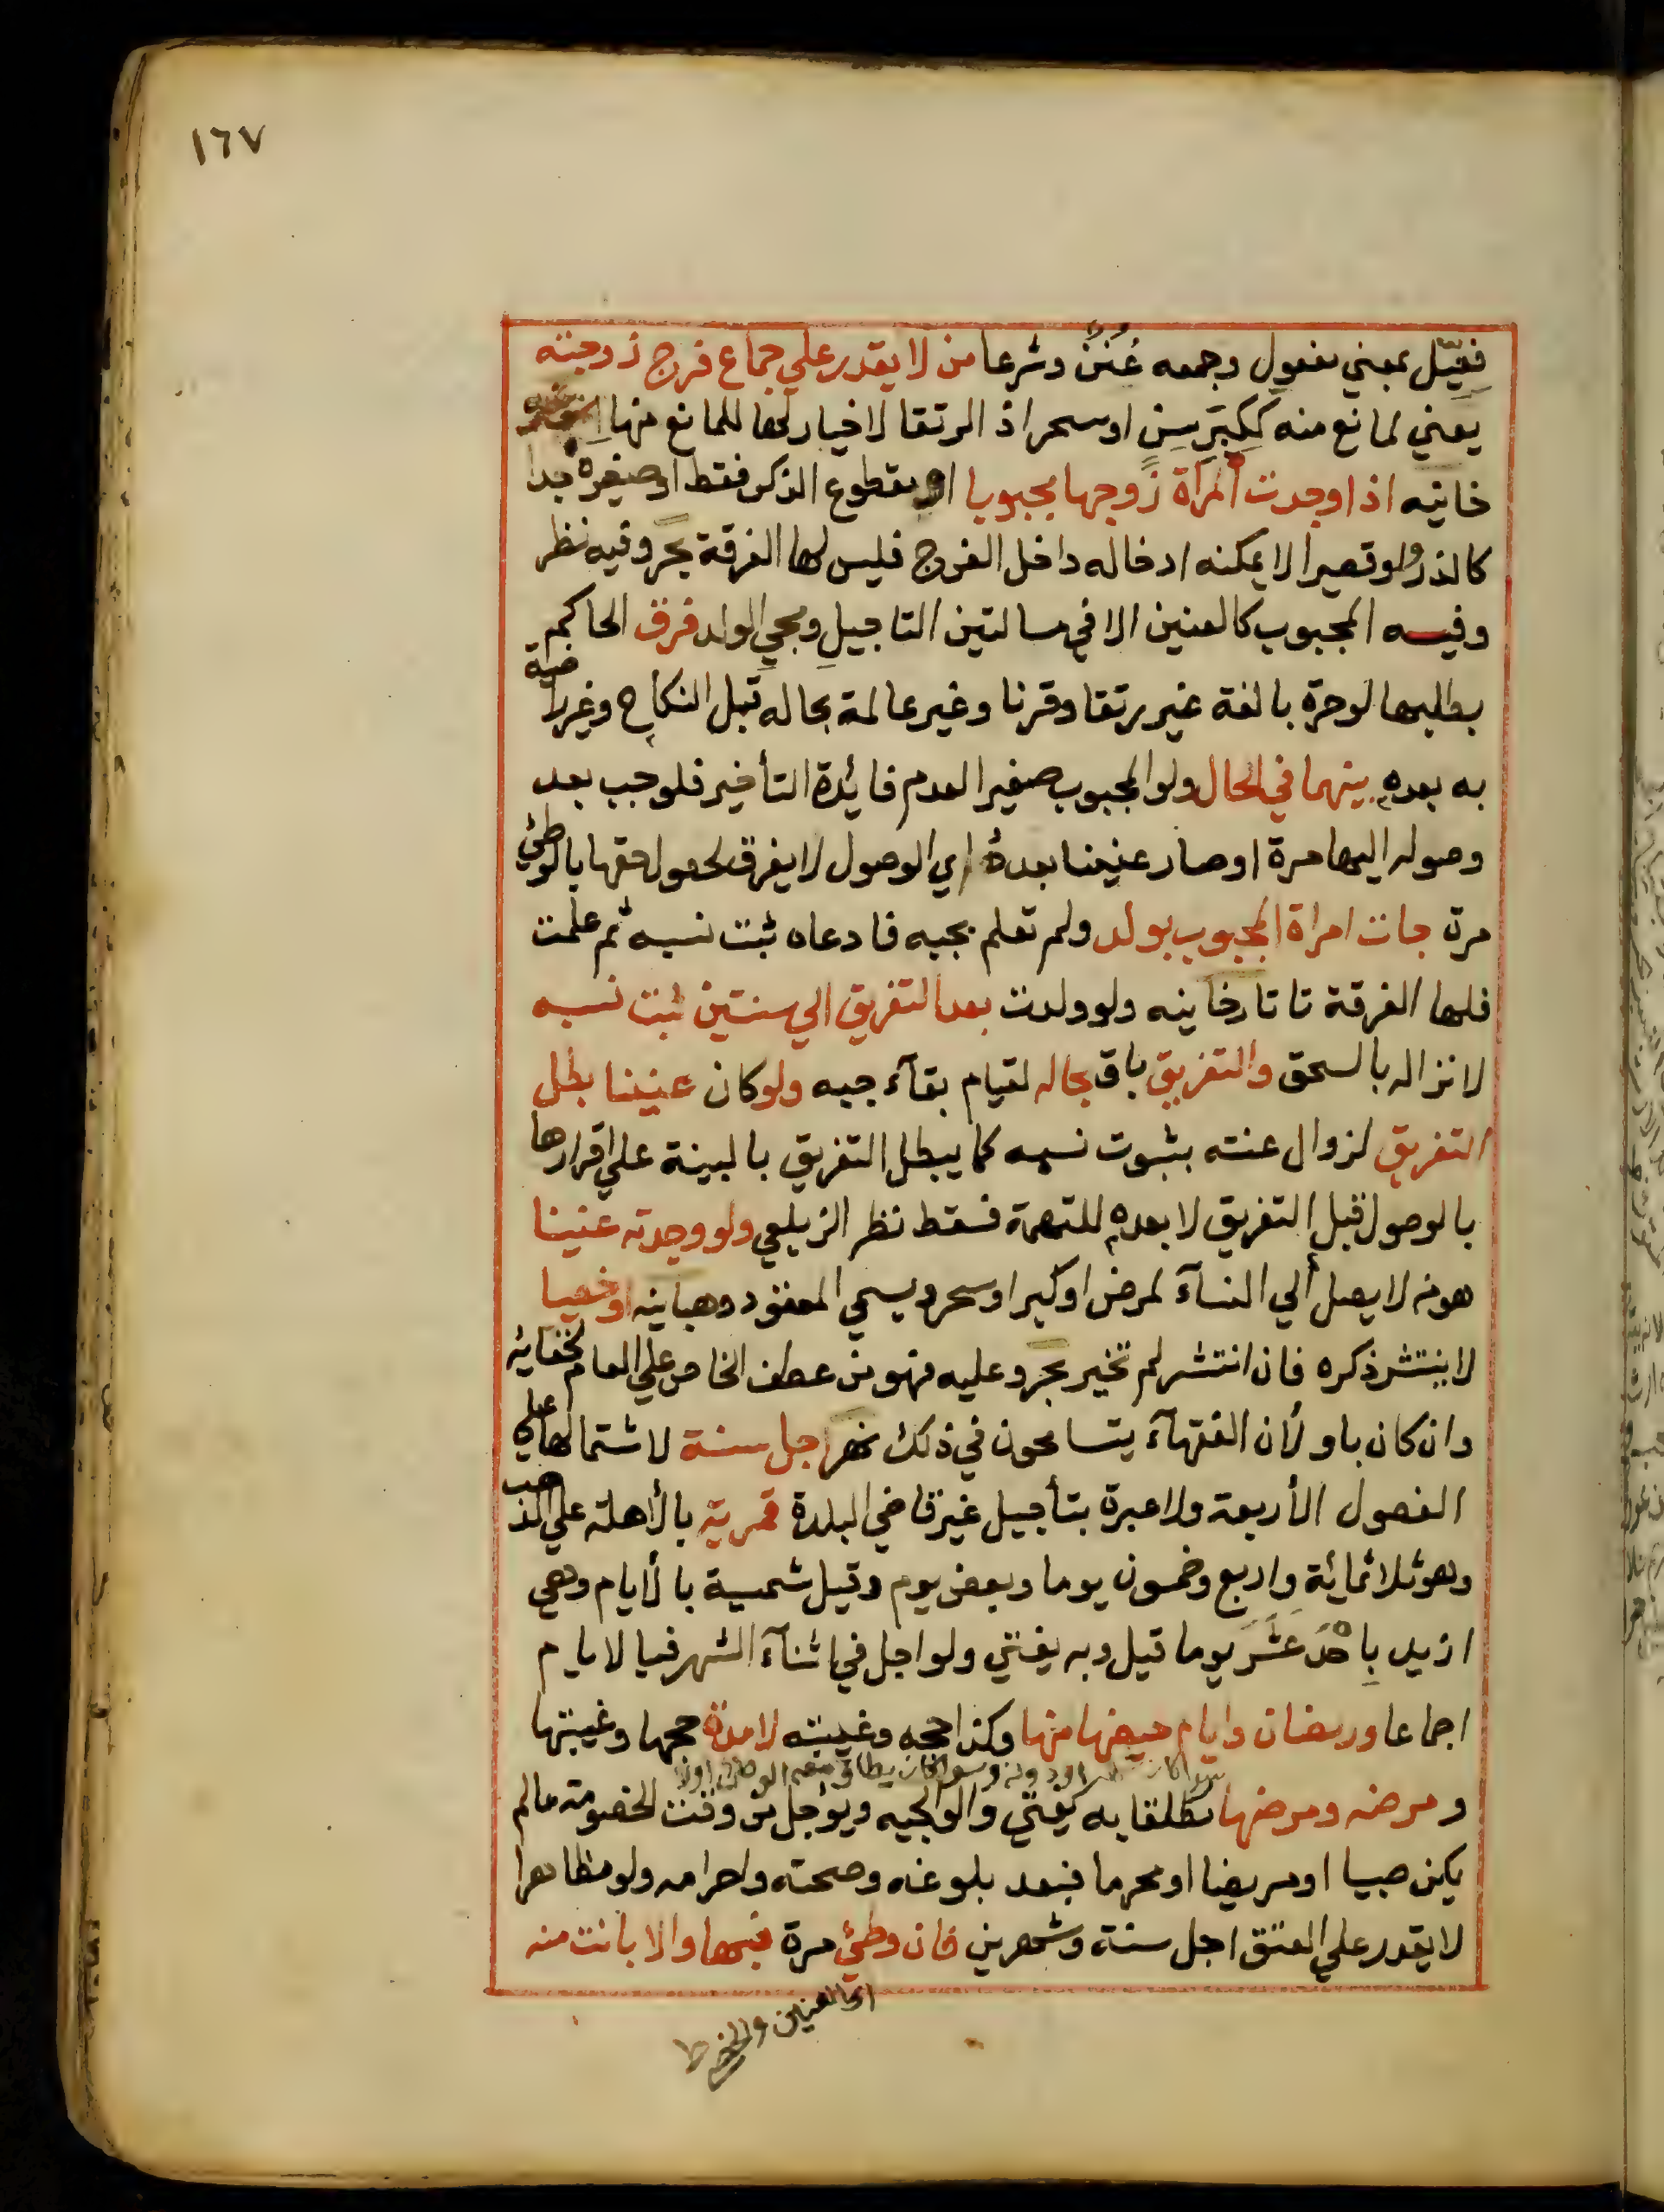 ١٦٧
فِعِّيل بمعني مفعول وجمعه عُنُنٌ وشرعا من لا يقدر علي جماع فرج زوجته
يعني لمانع منه كَكِبَرِ سِنٍ او سحر اذ الرتقا لا خيار لها للمانع منها
خانيه اذا وجدت المرأة زوجها مجبوبا او مقطوع الذكر فقط او صغيره جدا
كالذر ولو قصيرا لا يمكنه ادخاله داخل الفرج فليس لها الفرقة بحر وفيه نظر
وفيه المجبوب كالعنين الا في مسالتين التاجيلِ ومجيِ الولد فرق الحاكم
بطلبها لو حرة بالغة غير رتقا وقرنا وغير عالمة بحاله قبل النكاح وغير راضية
به بعده بينهما في الحال ولو المجبوب صغيرا لعدم فائدة التأخير فلو جب بعد
وصوله اليها مرة او صار عنينا بعده اي الوصول لا يفرق لحصول حقها بالوطئ
مرة جات امراة المجبوب بولد ولم تعلم بجبه فادعاه ثبت نسبه ثم علمت
فلها الفرقة تاتارخانيه ولو ولدت بعد التفريق الي سنتين ثبت نسبه
لانزاله بالسحق والتفريق باق بحاله لقيام بقآء جبه ولو كان عنينا بطل
التفريق لزوال عنته بثبوت نسبه كما يبطل التفريق بالبينة علي اقرارها
بالوصول قبل التفريق لا بعده للتهمة فسقط نظر الزيلعي ولو وجدته عنينا
هو من لا يصل الي النسآء لمرض او كبر او سحر ويسمي المعقود وهبانيه او خصيا
لا ينتشر ذكره فان انتشر لم تخير بحر وعليه فهو من عطف الخاص علي العام لخفائه
وان كان باو ولأن الفقهآء يتسامحون في ذلك نهر اجل سنة لاشتمالها علي
الفصول الأربعة ولا عبرة بتأجيل غير قاضي البلدة قمرية بالأهلة علي المذهب
وهو ثلاثمائة واربع وخمسون يوما وبعض يوم وقيل شمسية بالأيام وهي
ازيد بِاحْدَ عَشَرَ يوما قيل وبه يفتي ولو اجل في اثنآء الشهر فبالايام
اجماعا ورمضان وايام حيضها منها وكذا حجه وغيبته لا مدة حجها وغيبتها
ومرضه ومرضها مطلقا به يفتي ولوالجيه ويؤجل من وقت الخصومة ما لم
يكن صبيا او مريضا او محرما فبعد بلوغه وصحته واحرامه ولو مظاهرا
لا يقدر علي العتق اجل سنة وشهرين فان وطئ مرة فبها والا بانت منه